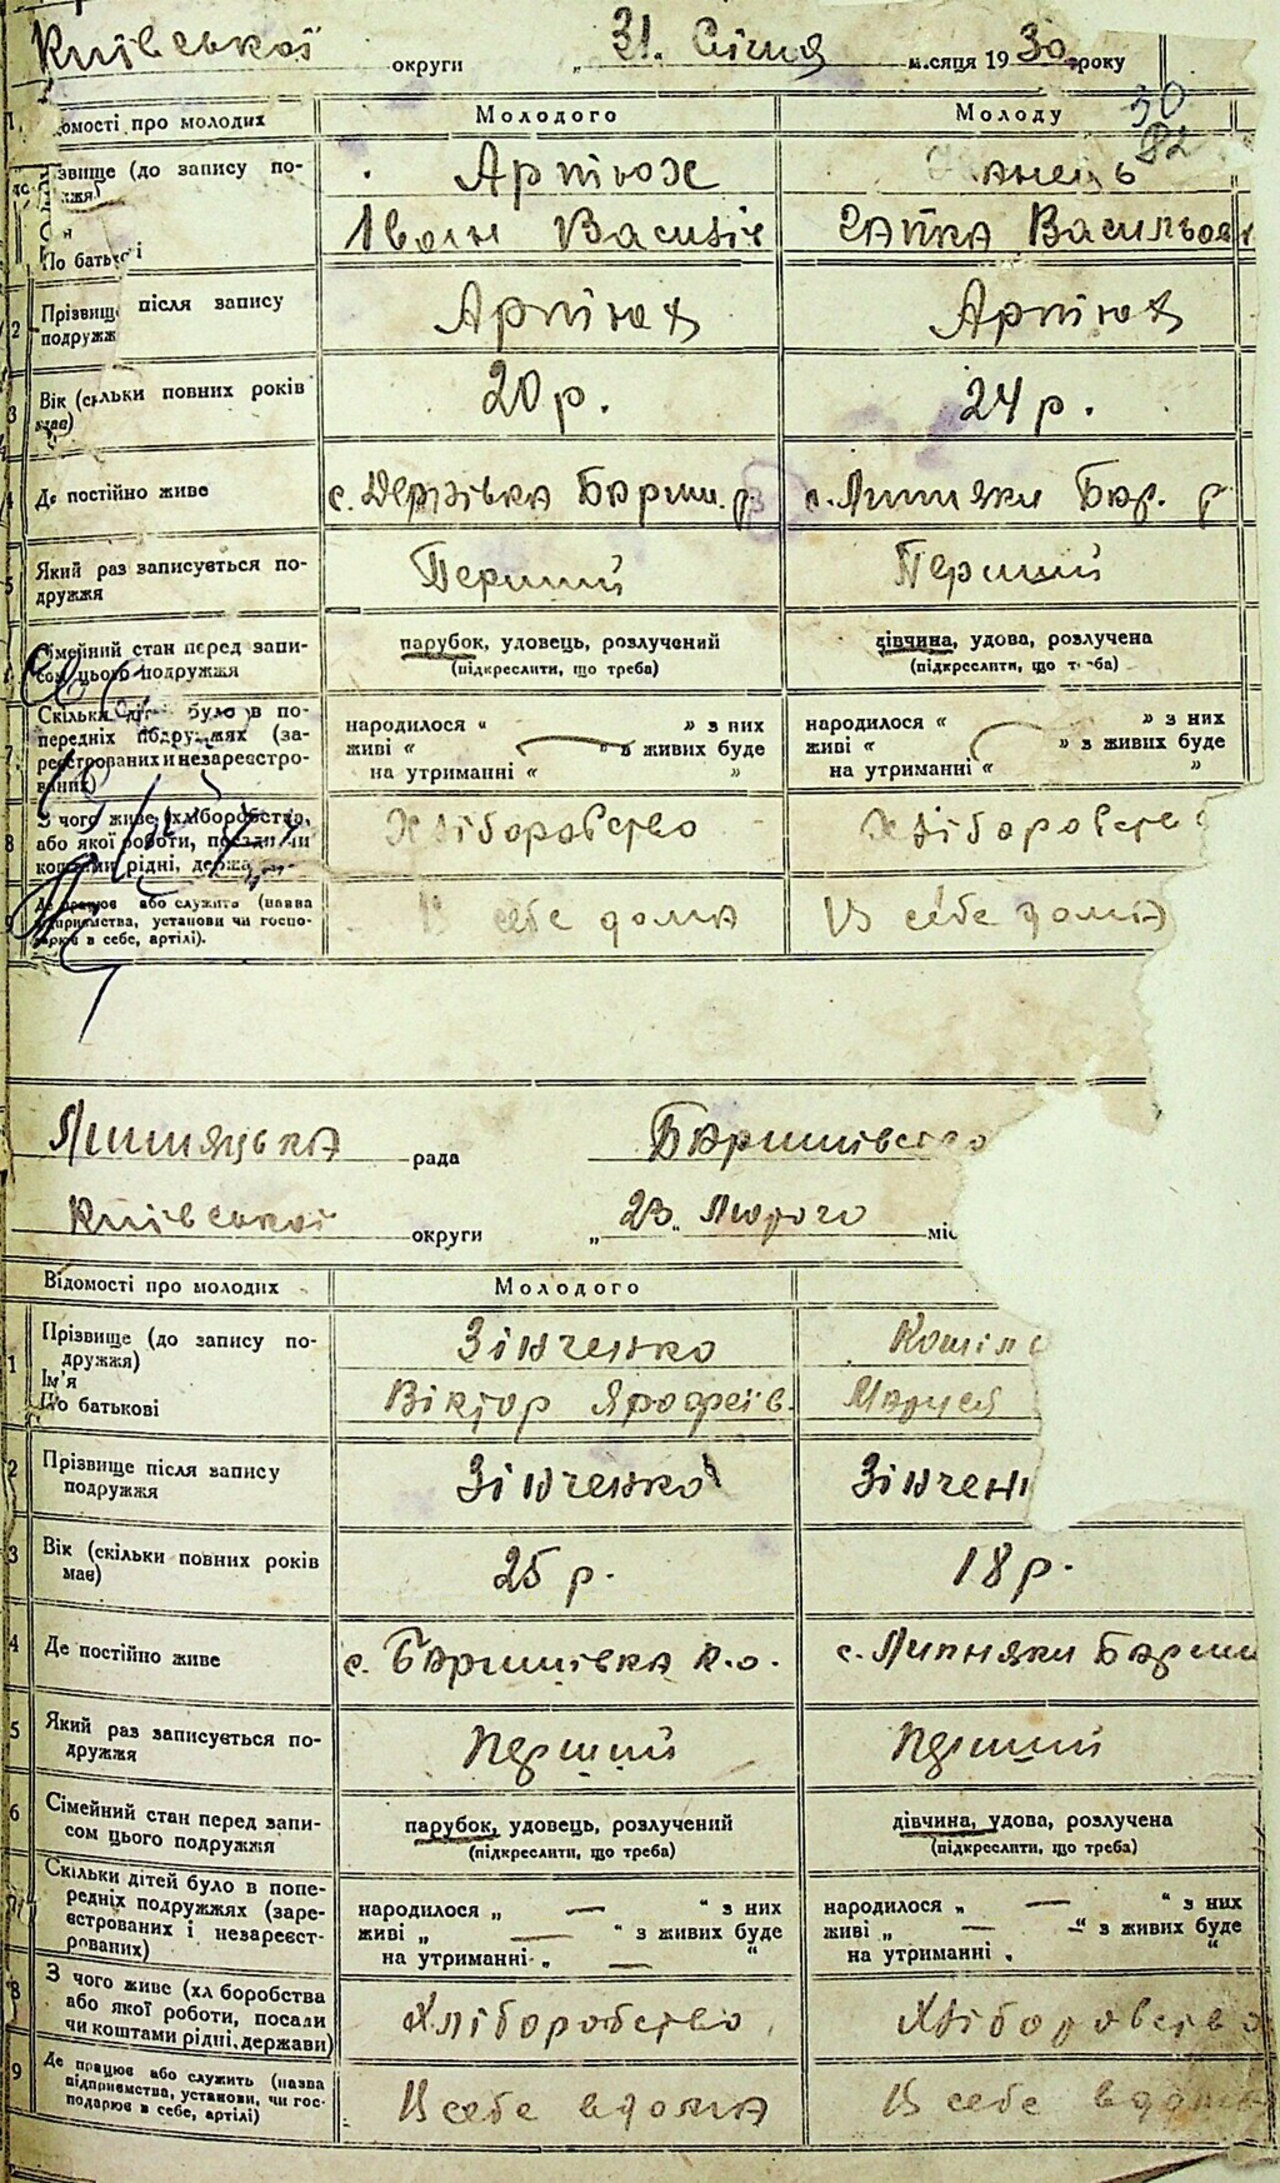 Київської округи „ 31. Січня місяця 1930 року
30
82
домості про молодих Молодого Молоду
звище (до запису по-
жжя)
По батькові
Артюх
Іван Василів Гапка Васильов
2 Прізвищ після запису
подружж
Артюх Артюх
3 Вік (скільки повних років
має)
20 р. 24 р.
Де постійно живе с. Дернівка Бариш. р. с. Липняки Бар. р
5 Який раз записується по-
дружжя
Перший Перший
Сімейний стан перед запи-
сом цього подружжя
парубок, удовець, розлучений дівчина, удова, розлучена
(підкреслити, що треба) (підкреслити, що треба)
7 Скільки дітей було в по-
передніх подружжях (за-
реєстрованих и незареєстро-
ваних)
народилося “ ” з них народилося “ ” з них
живі “ ” з живих буде живі “ ” з живих буде
на утриманні “ ” на утриманні “ ”
8 З чого живе (хліборобство,
або якої роботи, посади чи
коштами рідні, держа
Хліборобство Хліборобств
9 Де працює або служить (назва
підприємства, установи чи госпо-
дарює в себе, артілі).
В себе дома В себе дома
Липняцька рада Баришівсько
Київської округи „ 23 “ Лютого міс
Відомості про молодих Молодого
1 Прізвище (до запису по-
дружжя)
Ім’я
По батькові
Зінченко
Віктор Ярофеїв. Маруся
2 Прізвище після запису
подружжя
Зінченко Зінчен
3 Вік (скільки повних років
має)
25 р. 18 р.
4 Де постійно живе с. Баришівка К.о. с. Липняки Бариш
5 Який раз записується по-
дружжя
Перший Перший
6 Сімейний стан перед запи-
сом цього подружжя
парубок, удовець, розлучений дівчина, удова, розлучена
(підкреслити, що треба) (підкреслити, що треба)
Скільки дітей було в попе-
редніх подружжях (заре-
єстрованих і незареєст-
рованих)
народилося „ — “ з них народилося „ — “ з них
живі „ — “ з живих буде живі „ — “ з живих буде
на утриманні „ — “ на утриманні „ “
8 З чого живе (хл боробства
або якої роботи, посади
чи коштами рідні, держави)
Хліборобство Хліборобство
9 Де працює або служить (назва
підприємства, установи, чи гос-
подарює в себе, артілі)
В себе вдома В себе вдома